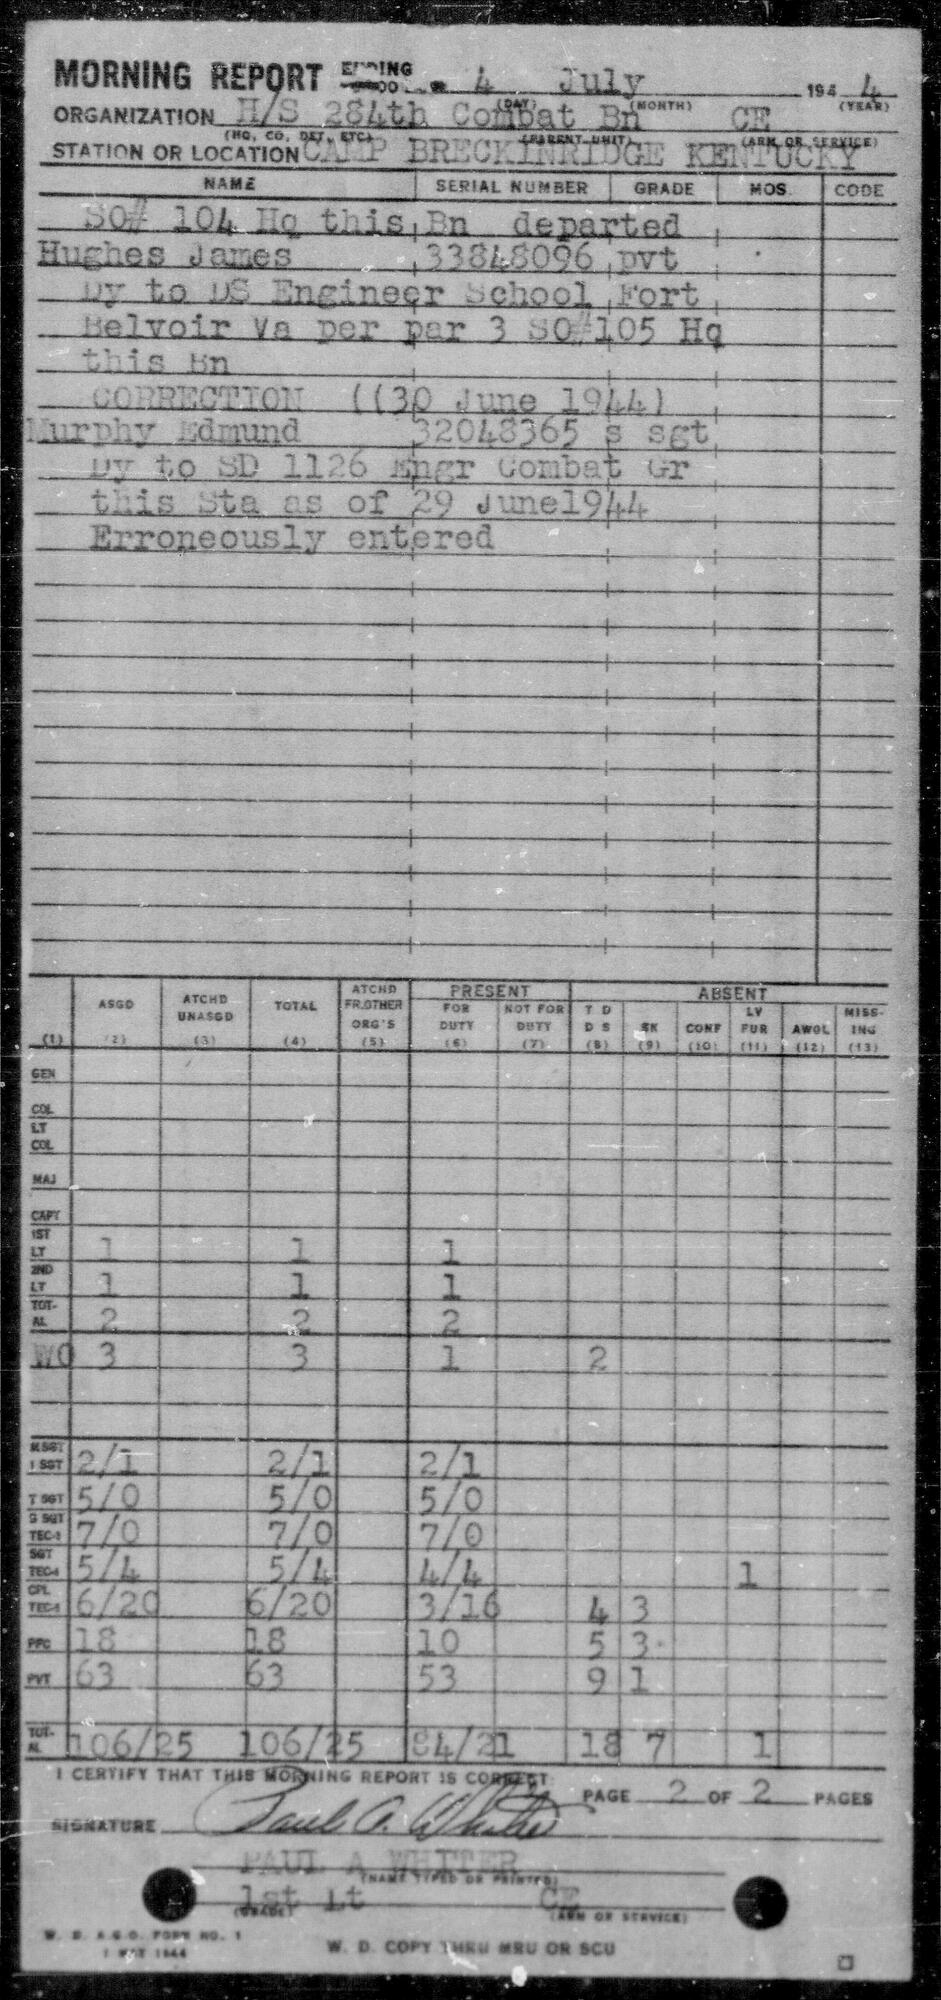 MORNING REPORT ENDING 4 July 1944
(DAY) (MONTH) (YEAR)
ORGANIZATION H/S 284th Combat Bn CE
(HQ, CO, DET, ETC) (PARENT UNIT) (ARM OR SERVICE)
STATION OR LOCATION CAMP BRECKINRIDGE KENTUCKY
NAME SERIAL NUMBER GRADE MOS. CODE
SO# 104 Hq this Bn departed
Hughes James 33848096 pvt
Dy to DS Engineer School Fort
Belvoir Va per par 3 SO#105 Hq
this Bn
CORRECTION ((30 June 1944)
Murphy Edmund 32048365 s sgt
Dy to SD 1126 Engr Combat Gr
this Sta as of 29 June1944
Erroneously entered
ATCHD PRESENT ABSENT
ASGD ATCHD UNASGD TOTAL FR.OTHER ORG'S FOR DUTY NOT FOR DUTY T D D S SK CONF LV FUR AWOL MISS-ING
(1) (2) (3) (4) (5) (6) (7) (8) (9) (10) (11) (12) (13)
GEN
COL
LT COL
MAJ
CAPT
1ST LT 1 1 1
2ND LT 1 1 1
TOT-AL 2 2 2
WO 3 3 1 2
M SGT 1 SGT 2/1 2/1 2/1
T SGT 5/0 5/0 5/0
S SGT TEC-3 7/0 7/0 7/0
SGT TEC-4 5/4 5/4 4/4 1
CPL TEC-5 6/20 6/20 3/16 4 3
PFC 18 18 10 5 3
PVT 63 63 53 9 1
TOT-AL 106/25 106/25 84/21 18 7 1
I CERTIFY THAT THIS MORNING REPORT IS CORRECT:
PAGE 2 OF 2 PAGES
SIGNATURE Paul A. Whiter
PAUL A WHITER
(NAME TYPED OR PRINTED)
1st Lt CE
(GRADE) (ARM OR SERVICE)
W. D. A.G.O. FORM NO. 1
1 MAY 1944
W. D. COPY THRU MRU OR SCU